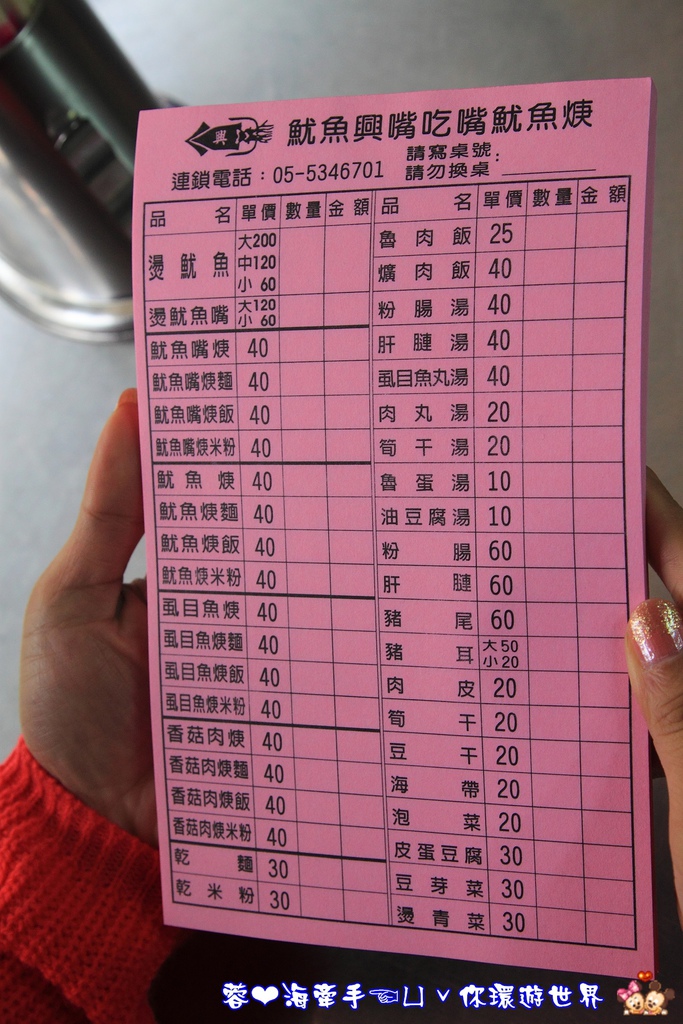 興
魷魚興嘴吃嘴魷魚焿
請寫桌號:
連鎖電話:05-5346701 請勿換桌
品名 單價 數量 金額
燙魷魚 大200 中120 小 60
燙魷魚嘴 大120 小 60
魷魚嘴焿 40
魷魚嘴焿麵 40
魷魚嘴焿飯 40
魷魚嘴焿米粉 40
魷魚焿 40
魷魚焿麵 40
魷魚焿飯 40
魷魚焿米粉 40
虱目魚焿 40
虱目魚焿麵 40
虱目魚焿飯 40
虱目魚焿米粉 40
香菇肉焿 40
香菇肉焿麵 40
香菇肉焿飯 40
香菇肉焿米粉 40
乾麵 30
乾米粉 30
品名 單價 數量 金額
魯肉飯 25
爌肉飯 40
粉腸湯 40
肝腱湯 40
虱目魚丸湯 40
肉丸湯 20
筍干湯 20
魯蛋湯 10
油豆腐湯 10
粉腸 60
肝腱 60
豬尾 60
豬耳 大50 小20
肉皮 20
筍干 20
豆干 20
海帶 20
泡菜 20
皮蛋豆腐 30
豆芽菜 30
燙青菜 30
蓉❤海牽手☜ㄩˇ你環遊世界